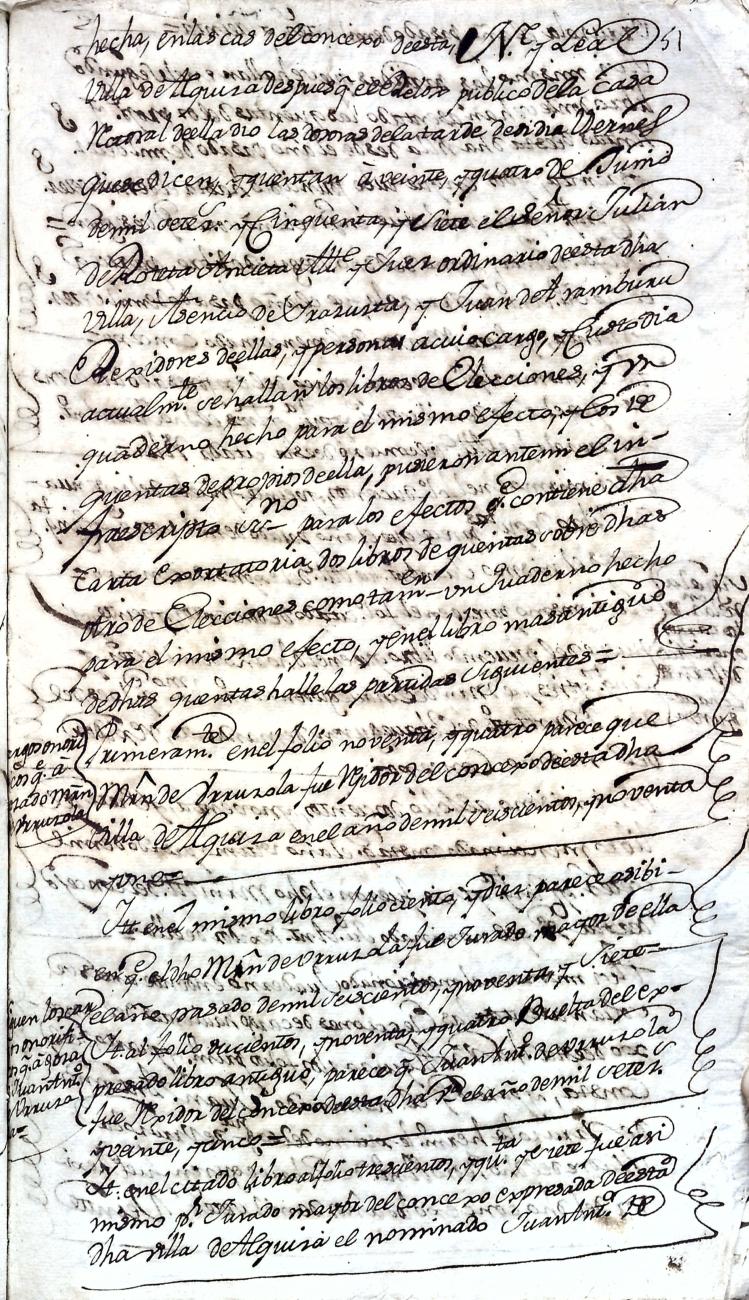 hecha, en las cas del concexo de esta, N.e y Leal 51
Villa de Alquiza despues q.e el relox publico de la Casa
Notoral de ella dio las dos oras de la tarde de si dia Viernes
que se dicen, y quentan à veinte, y quatro de Junio
de mil setes.s y Cinquenta, y siete el señor Julian
de Roteta Ancieta Alle y Juez ordinario de esta dha
villa, Asencio de Yrazusta, y Juan de Aramburu
Rexidores de ellas, y personas a cuio cargo, y Custodia
actualm.te se hallan los libros de Elecciones, y vn
quaderno hecho para el mismo efecto, y los de
quentas de propios de ella, pusieron ante mi el in-
fraescripto ss.no para los efectos q.e contiene dha
Carta Exortatoria, dos libros de quentas sobre dhas
otro de Elecciones como tam-en vn Quaderno hecho
para el mismo efecto, y en el libro mas antiguo
de dhas quentas halle las partidas Siguientes=
Primeram.te en el folio noventa, y quatro parece que
Mrn de Vrruzola fue Rexidor del concexo de esta dha
villa de Alquiza en el año de mil seiscientos, y noventa
y uno=
Yt. en el mismo libro folio ciento, y diez parece asibi-
en q.e el dho Mrn de Vrruzola fue Jurado mayor de ella
el año pasado de mil seiscientos, y noventa, y siete
Yt. al folio ducientos, y noventa, y quatro Buelta del ex-
presado libro antiguo, parece q.e Juan Ant.o de Vrruzola
fue Rexidor del concexo de esta dha V.a el año de mil setes.s
y veinte, y cinco=
Yt. en el citado libro al folio trescientos, y qu.ta y siete fue asi
mismo p.r Jurado mayor del concexo expresada de esta
dha villa de Alquiza el nominado Juan Ant.o de
cargos onori
cos q.e à
nado Mrn
Vrruzola
guen los car
onorifi-
q.e à gosa
Juan Ant.o
Vrruzo